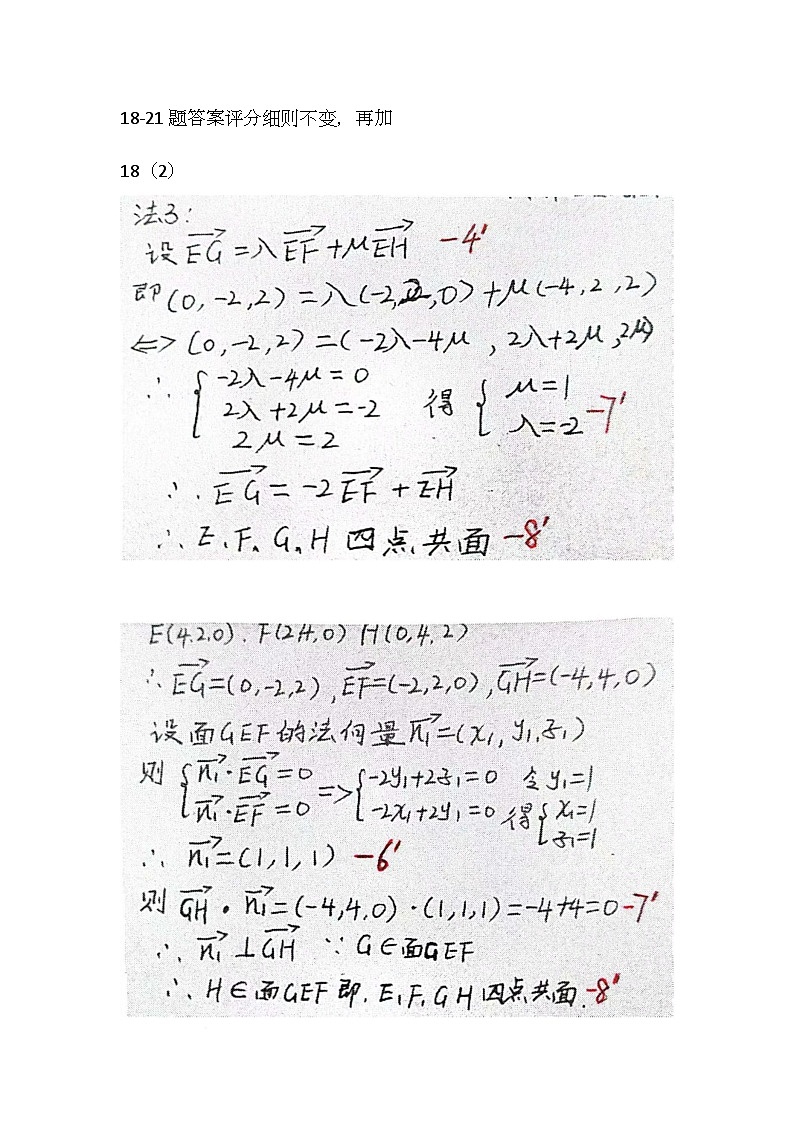 18-21 题答案评分细则不变，再加
18（2）
法3：
设 $\overrightarrow{EG}=\lambda\overrightarrow{EF}+\mu\overrightarrow{EH}$ -4'
即 (0, -2, 2) = λ(-2, 2, 0) + μ(-4, 2, 2)
⟺ (0, -2, 2) = (-2λ-4μ, 2λ+2μ, 2μ)
∴ { -2λ-4μ=0
2λ+2μ=-2 得 { μ=1
2μ=2 λ=-2 -7'
∴ $\overrightarrow{EG}=-2\overrightarrow{EF}+\overrightarrow{EH}$
∴ E、F、G、H 四点共面 -8'
E(4,2,0)、F(2,4,0) H(0,4,2)
∴ $\overrightarrow{EG}$=(0,-2,2), $\overrightarrow{EF}$=(-2,2,0), $\overrightarrow{GH}$=(-4,4,0)
设面GEF的法向量 $\overrightarrow{n_1}$=(x₁, y₁, z₁)
则 { $\overrightarrow{n_1}\cdot\overrightarrow{EG}$=0 => { -2y₁+2z₁=0 令 y₁=1
$\overrightarrow{n_1}\cdot\overrightarrow{EF}$=0 -2x₁+2y₁=0 得 { x₁=1
z₁=1
∴ $\overrightarrow{n_1}$=(1,1,1) -6'
则 $\overrightarrow{GH}\cdot\overrightarrow{n_1}$=(-4,4,0)·(1,1,1)=-4+4=0 -7'
∴ $\overrightarrow{n_1}\perp\overrightarrow{GH}$ ∵ G∈面GEF
∴ H∈面GEF 即. E, F, G H 四点共面. -8'